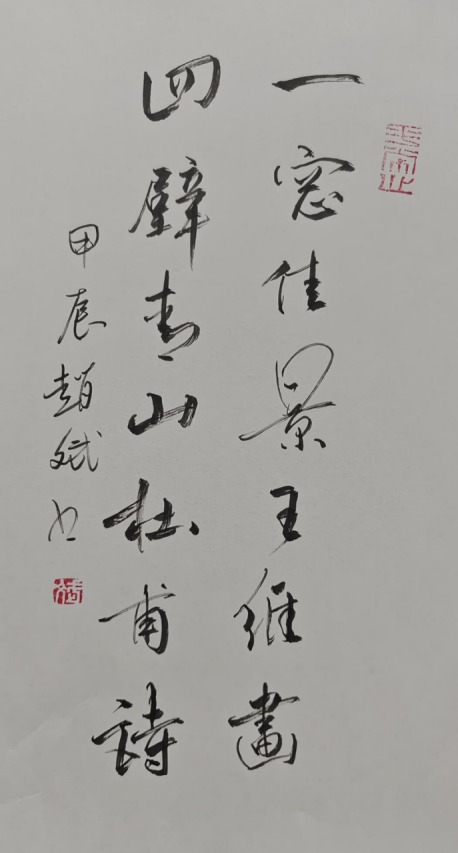 一窓佳景王維畫
四壁青山杜甫詩
甲辰趙斌书